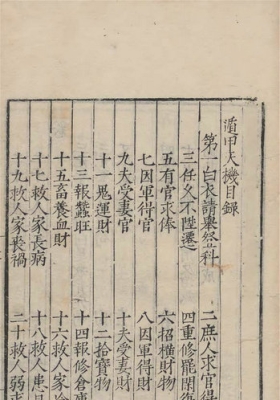 遁甲天機目錄
第一白衣請舉科 二庶人求官得
三任久不陞遷 四重修罷閑復
五有官求俸 六招橫財物
七因軍得官 八因軍得財
九夫受妻官 十夫受妻財
十一鬼運財 十二拾寶物
十三報蠶旺 十四報修倉
十五畜養血財 十六救人家
十七救人家長病 十八救人患
十九救人家喪禍 二十救人弱